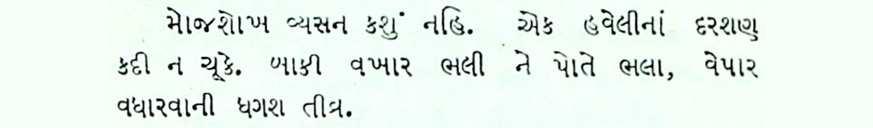 મોજશોખ વ્યસન કશું નહિ. એક હવેલીનાં દરશણ
કદી ન ચૂકે. બાકી વખાર ભલી ને પોતે ભલા, વેપાર
વધારવાની ધગશ તીવ્ર.